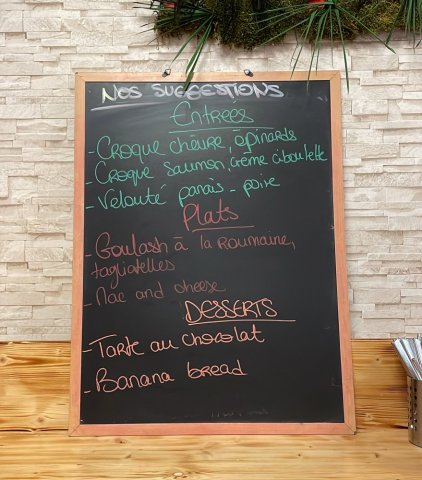 NOS SUGGESTIONS
Entrées
- Croque chèvre, épinards
- Croque saumon, crème ciboulette
- Velouté panais - poire
Plats
- Goulash à la Roumaine,
tagliatelles
- Mac and cheese
DESSERTS
- Tarte au chocolat
- Banana bread